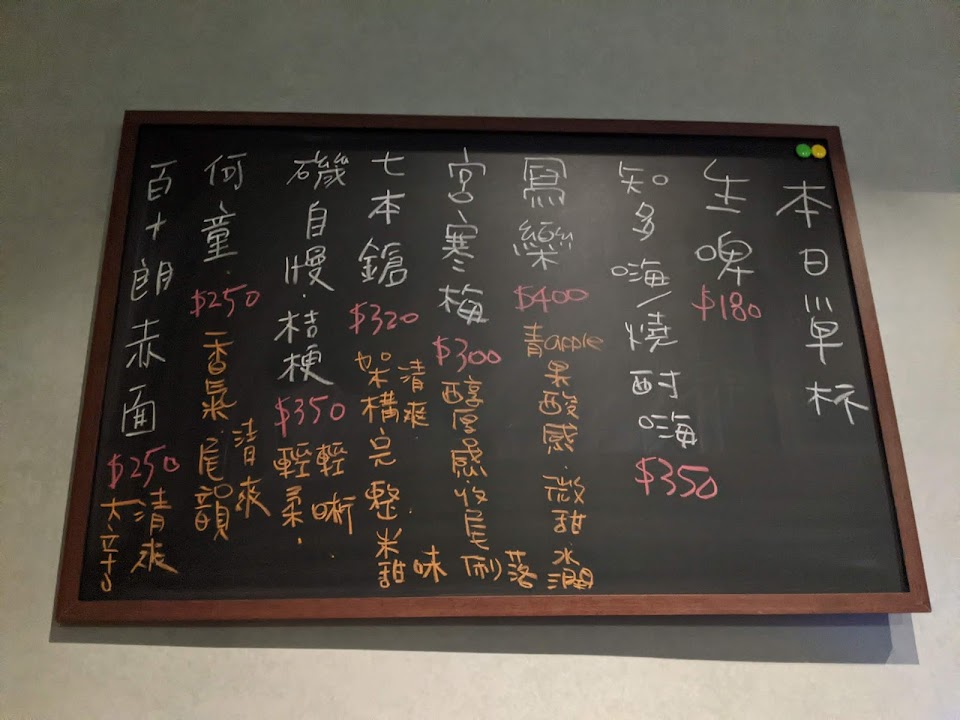 本日単杯
生啤
$180
知多嗨/燒酎嗨
$350
冩樂
$400
青apple
果酸感.微甜.水潤
宮寒梅
$300
醇厚感.收尾俐落
七本鎗
$320
清爽.
架構完整.米甜味
磯自慢.桔梗
$350
輕晰.
輕柔.
何童.
$250
香氣尾韻
清爽
百十朗赤面
$250
清爽
大辛口